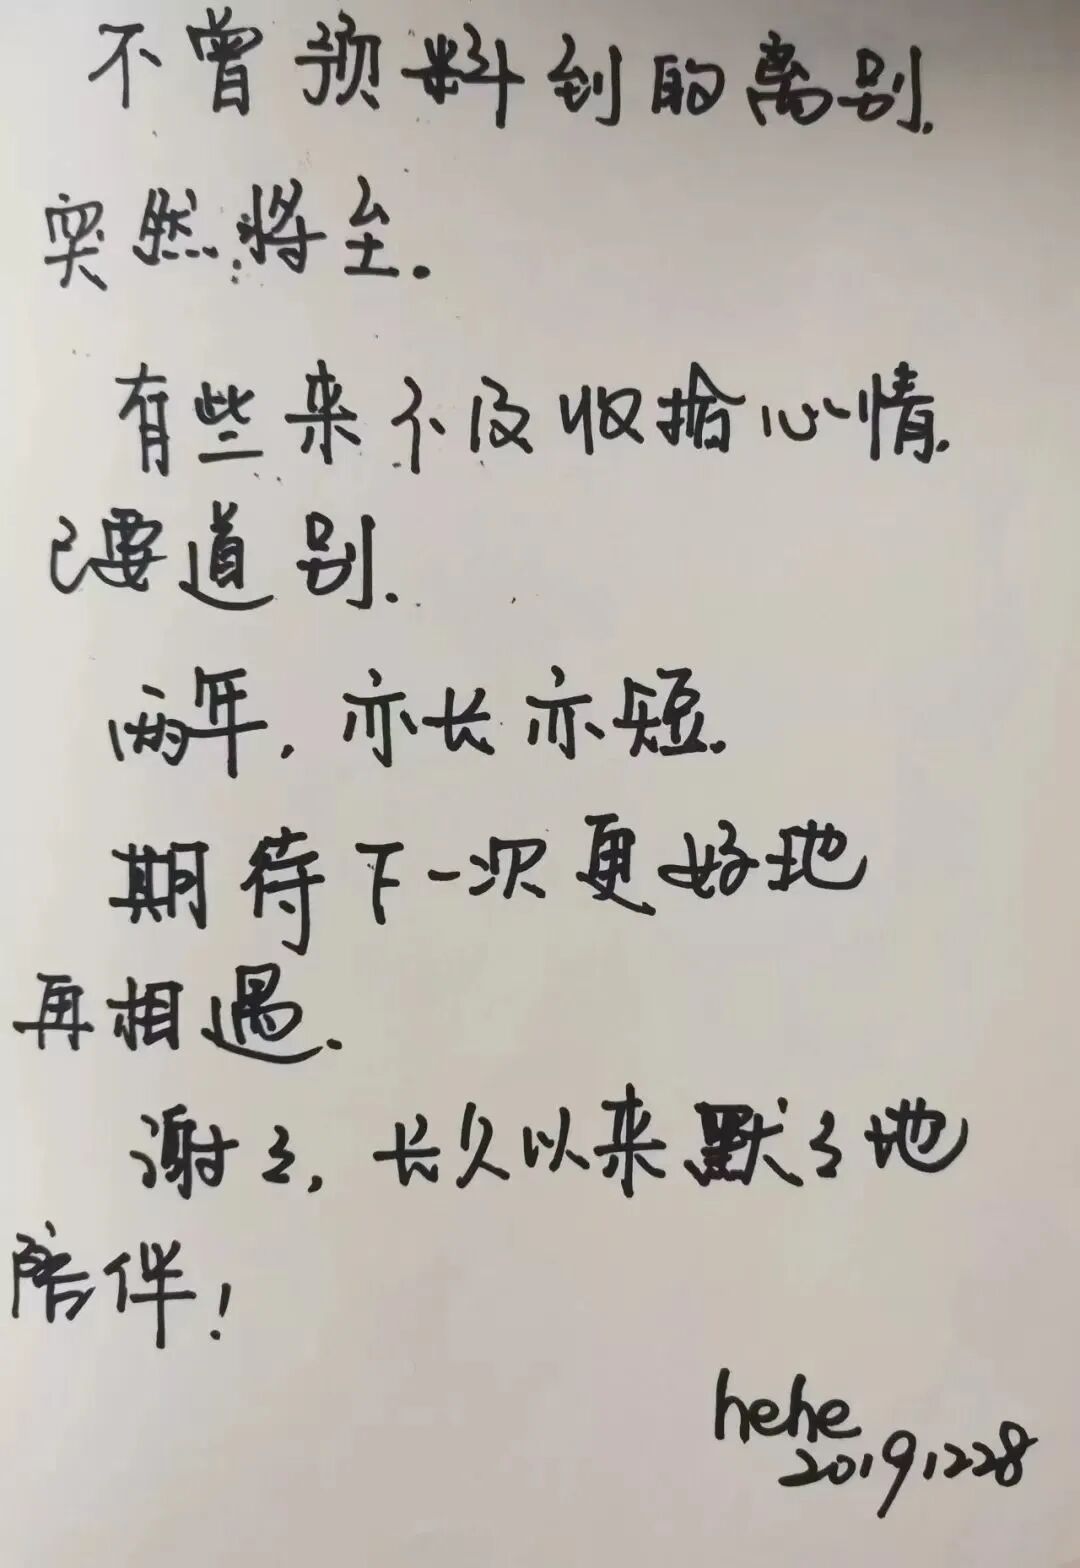 不曾预料到的离别.
突然将至.
有些来不及收拾心情.
已要道别.
两年,亦长亦短.
期待下一次更好地
再相遇.
谢々,长久以来默々地
陪伴!
hehe
20191228